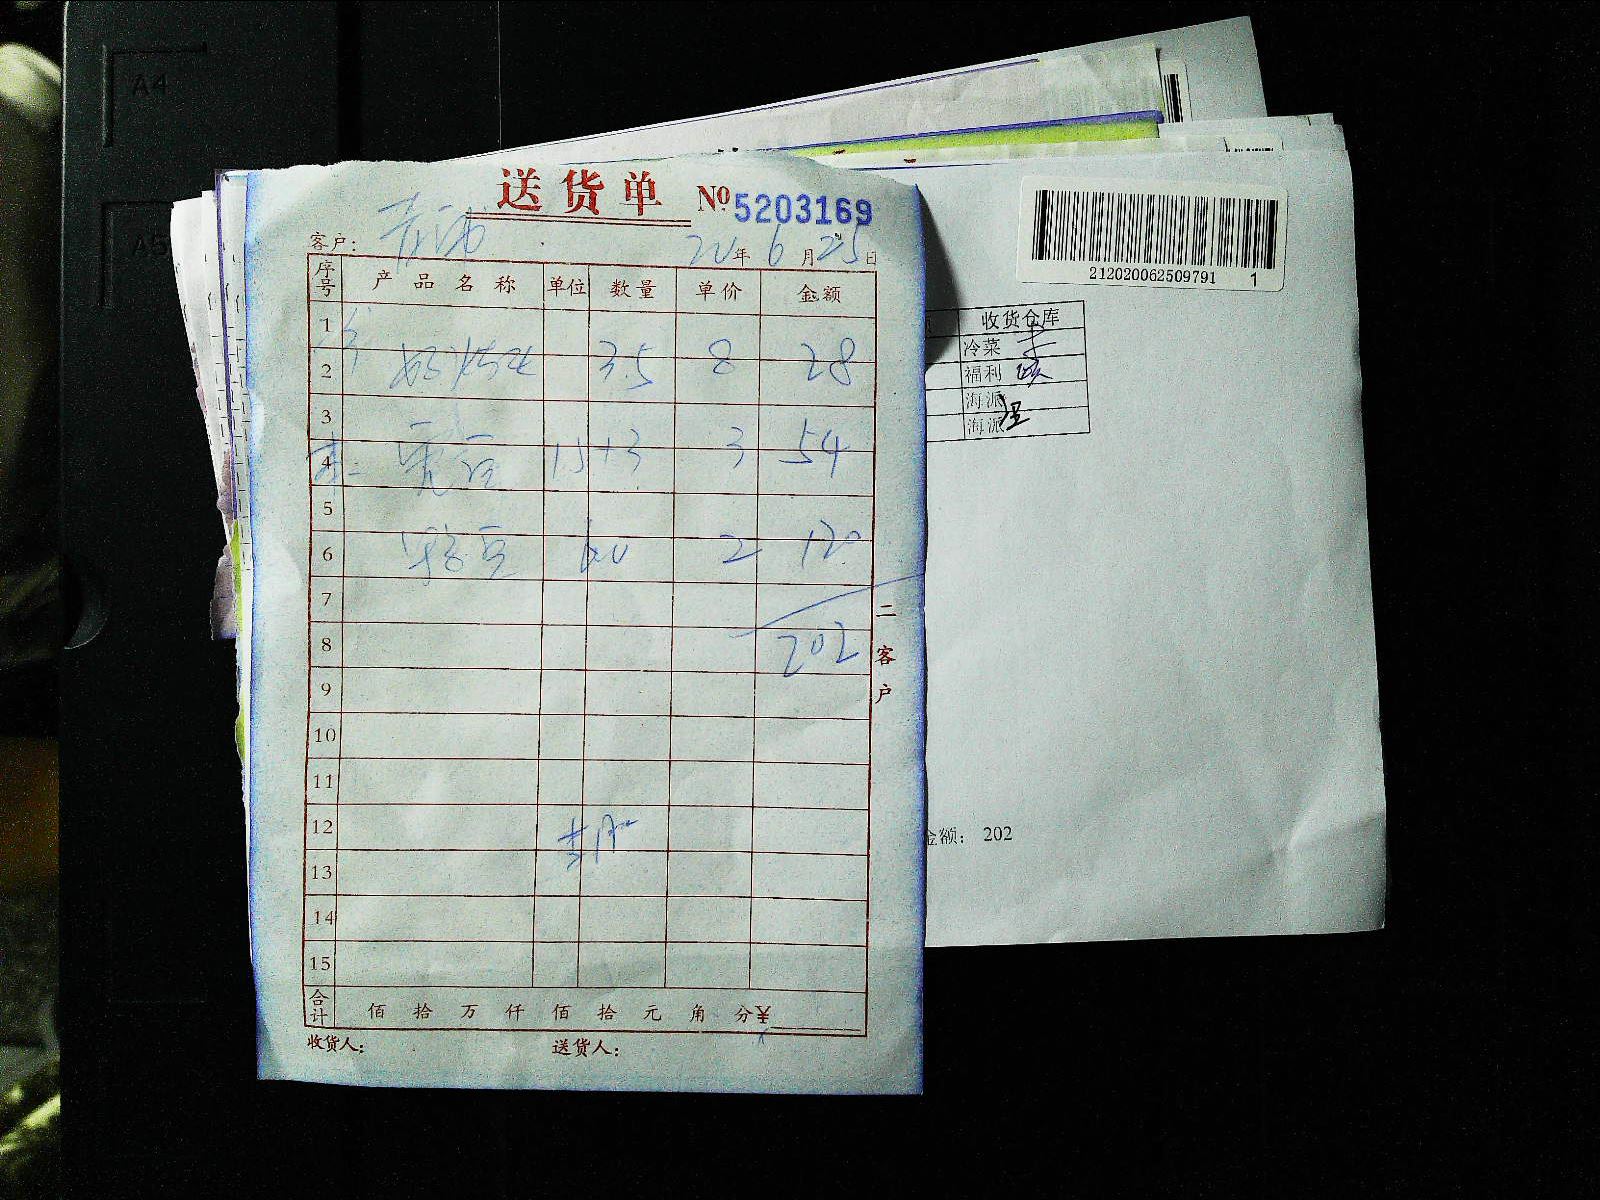 A4
A5
送货单 №5203169
客户：
20年6月25日
序号 产品名称 单位 数量 单价 金额
1
2 3.5 8 28
3
4 15+3 3 54
5
6 60 2 120
7
8 202
9
10
11
12
13
14
15
合计 佰 拾 万 仟 佰 拾 元 角 分¥
收货人： 送货人：
二客户
212020062509791 1
收货仓库
冷菜
福利
海派
海派
金额： 202